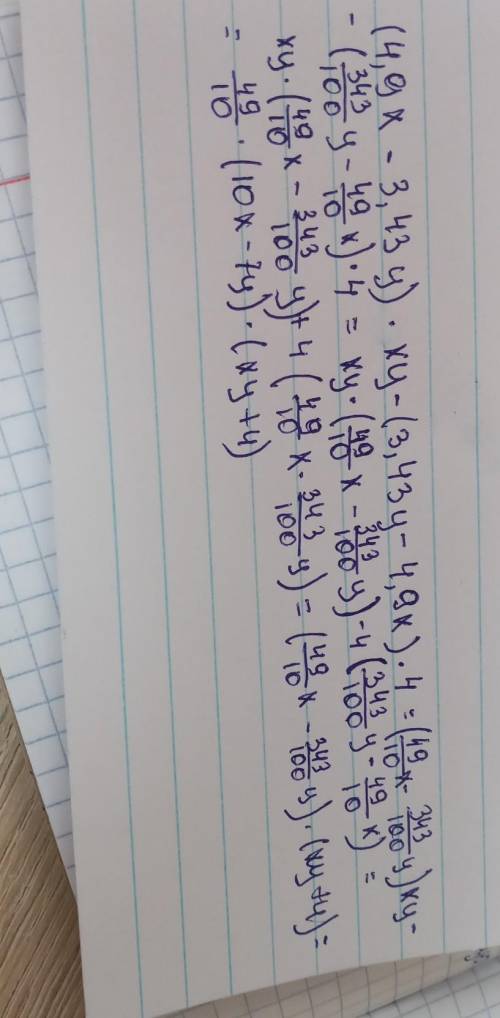 (4,9x - 3,43y) · xy - (3,43y - 4,9x) · 4 = (49/10 x - 343/100 y) xy -
- (343/100 y - 49/10 x) · 4 = xy · (49/10 x - 343/100 y) - 4 (343/100 y - 49/10 x) =
xy · (49/10 x - 343/100 y) + 4 (49/10 x - 343/100 y) = (49/10 x - 343/100 y) · (xy + 4) =
= 49/10 · (10x - 7y) · (xy + 4)